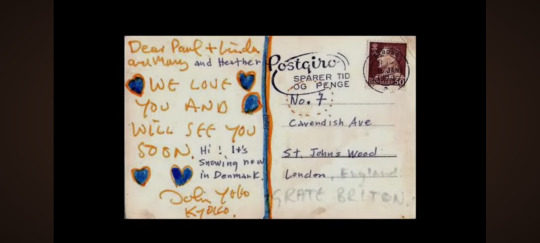 Dear Paul + Linda
and Mary and Heather
WE LOVE
YOU AND
WILL SEE YOU
SOON.
Hi! It's
Snowing now
in Denmark.
John Yoko
KYOKO.
Postgiro
SPARER TID
OG PENGE
No. 7
Cavendish Ave
St. John's Wood
London, England
GRATE BRITON.